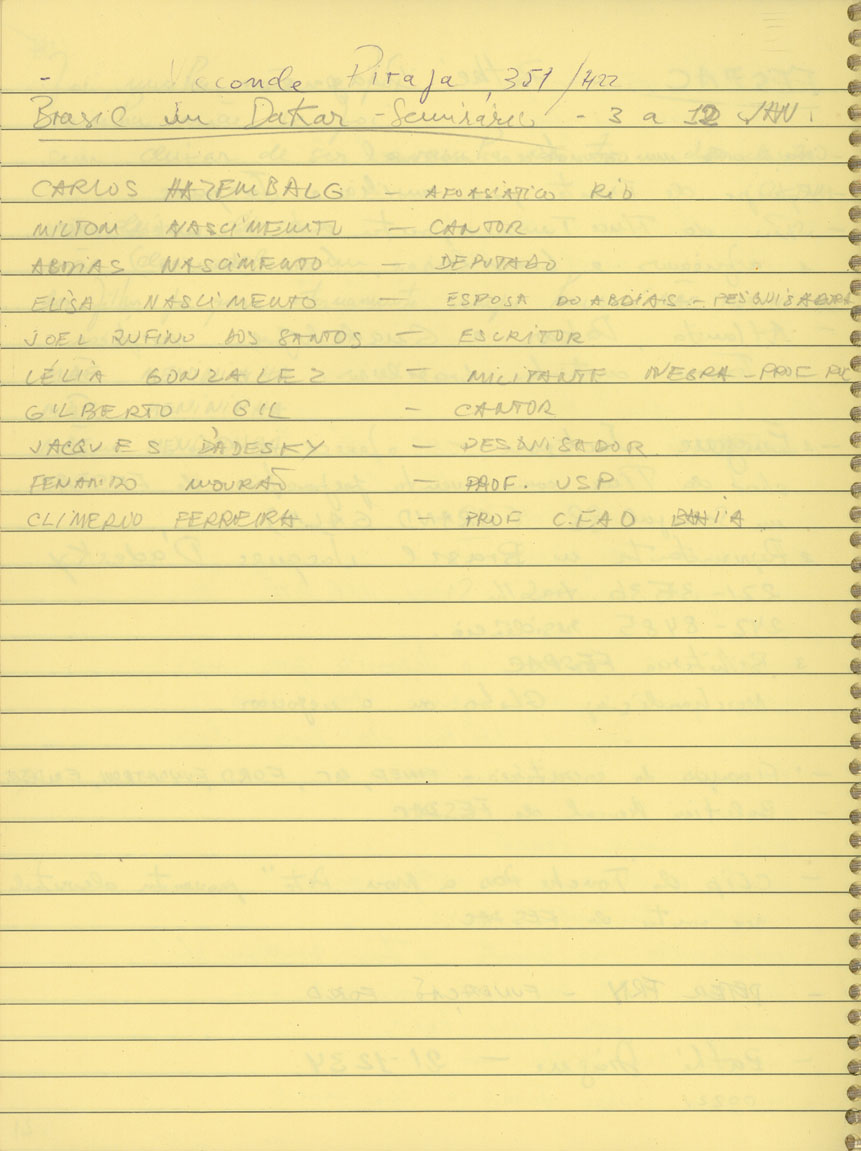 - Visconde Piraja, 351/422
Brasil in Dakar - Seminário - 3 a 12 JAN.
CARLOS HAZEMBALG - AFOASIATICO RIO
MILTOM NASCIMENTO - CANTOR
ABDIAS NASCIMENTO - DEPUTADO
ELISA NASCIMENTO - ESPOSA DO ABDIAS - PESQUISADORA
JOEL RUFINO DOS SANTOS - ESCRITOR
LÉLIA GONZALEZ - MILITANTE NEGRA - PROF PUC
GILBERTO GIL - CANTOR
JACQUES D'ADESKY - PESQUISADOR
FENANDO MOURÃO - PROF. USP
CLIMERIO FERREIRA - PROF C.EAO BAHIA